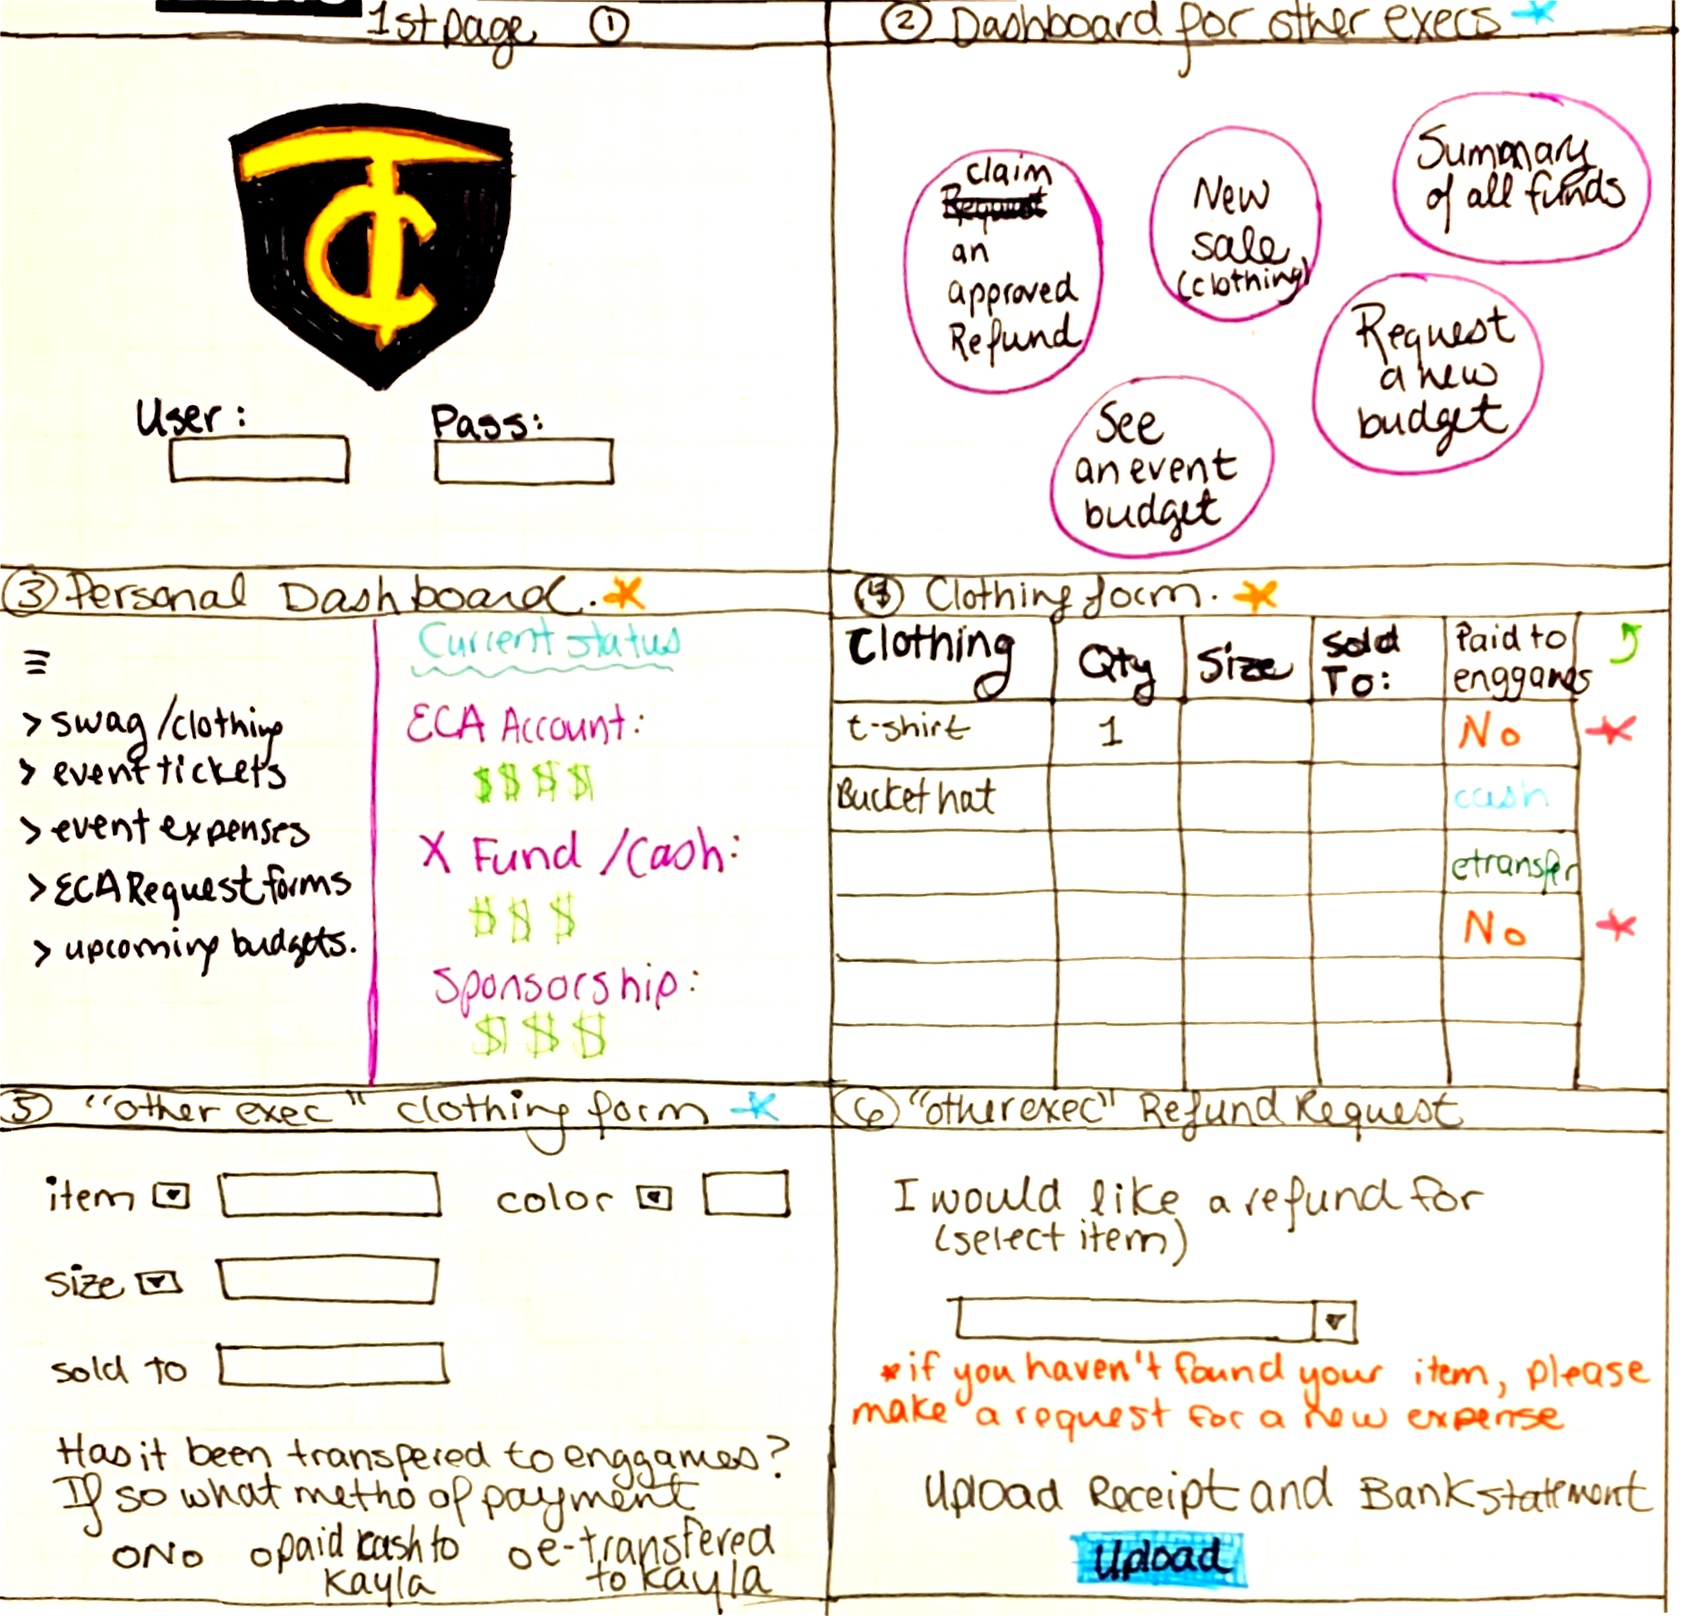 1st page ①
② Dashboard for other execs
claim
Request
an
approved
Refund
New
sale
(clothing)
Summary
of all funds
Request
a new
budget
See
an event
budget
TC
User:
Pass:
③ Personal Dashboard.
> swag/clothing
> event tickets
> event expenses
> ECA Request forms
> upcoming budgets.
Current status
ECA Account:
$$$$
X Fund /Cash:
$$$
Sponsorship:
$$$
④ Clothing form.
Clothing Qty Size Sold To: Paid to enggames
t-shirt 1 No
Bucket hat cash
etransfer
No
⑤ "other exec" clothing form
item
color
size
sold to
Has it been transfered to enggames?
If so what metho of payment
o No o paid cash to Kayla o e-transfered to Kayla
⑥ "other exec" Refund Request
I would like a refund for
(select item)
*if you haven't found your item, please
make a request for a new expense
Upload Receipt and Bank statement
Upload